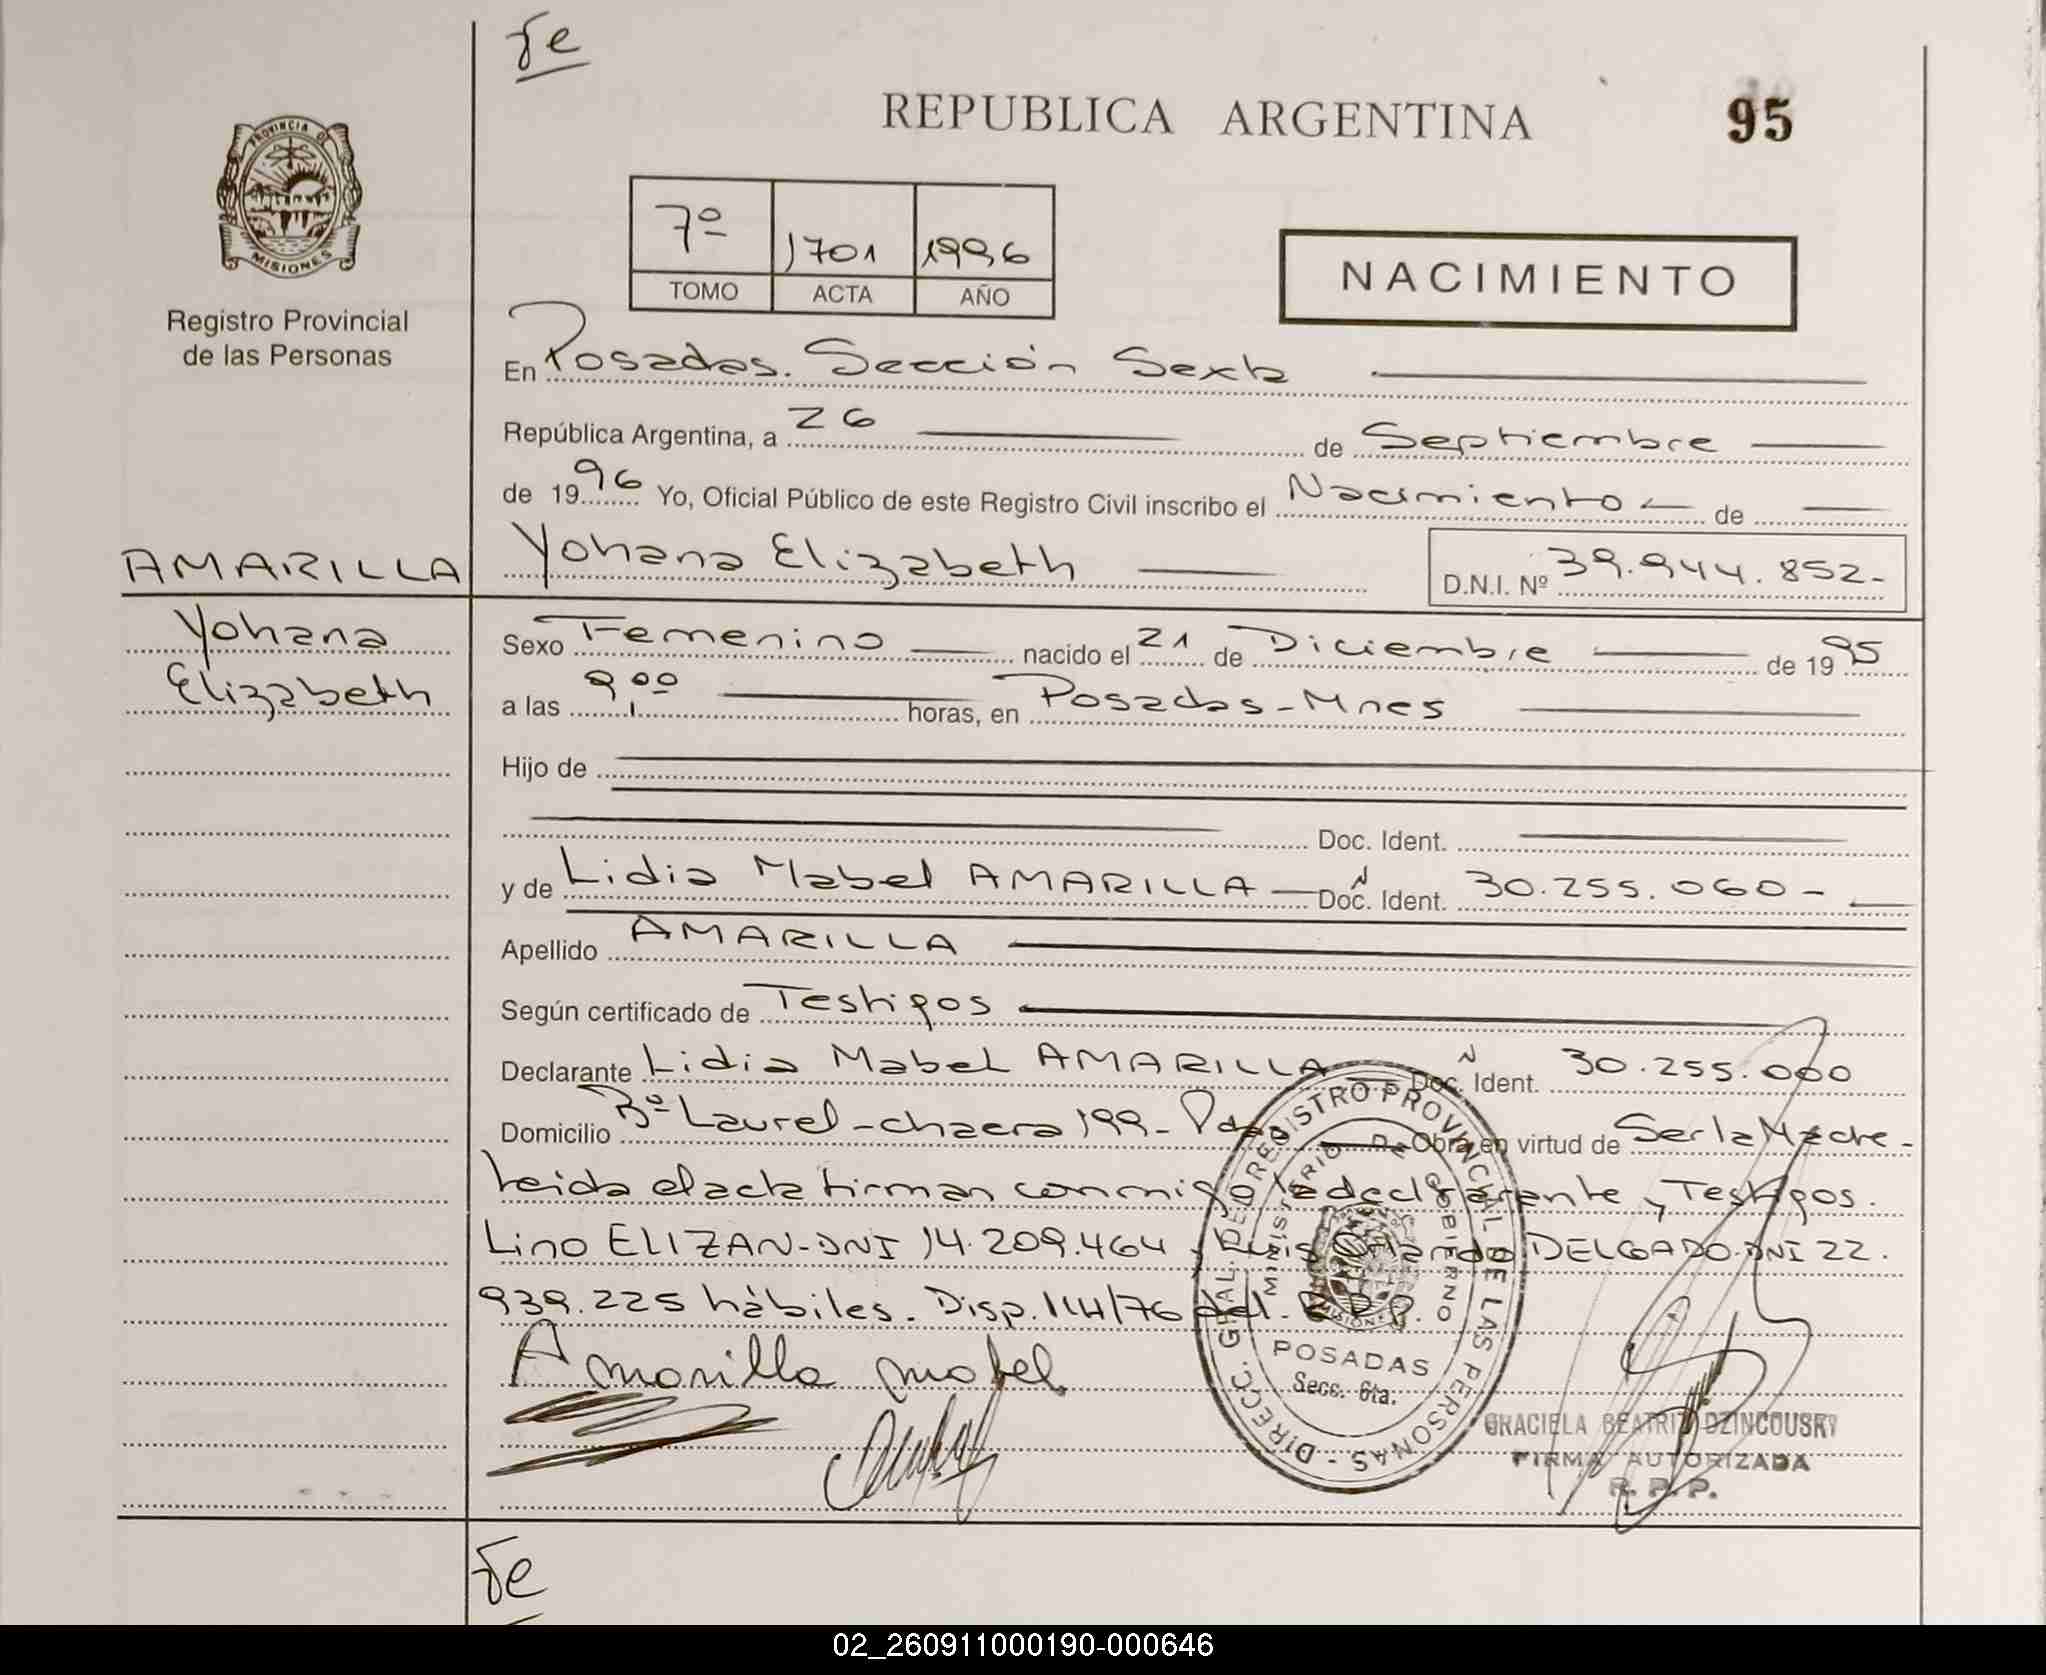 Fe
REPUBLICA ARGENTINA
95
PROVINCIA DE
MISIONES
Registro Provincial
de las Personas
7º 1701 1996
TOMO ACTA AÑO
NACIMIENTO
En Posadas. Sección Sexta
República Argentina, a 26 de Septiembre
de 1996 Yo, Oficial Público de este Registro Civil inscribo el Nacimiento de
AMARILLA
Yohana Elizabeth
D.N.I. Nº 39.944.852-
Yohana
Elizabeth
Sexo Femenino nacido el 21 de Diciembre de 1995
a las 9,00 horas, en Posadas-Mnes
Hijo de
Doc. Ident.
y de Lidia Mabel AMARILLA Doc. Ident. 30.255.060-
Apellido AMARILLA
Según certificado de Testigos
Declarante Lidia Mabel AMARILLA Doc. Ident. 30.255.060
Domicilio Bº Laurel-chacra 199- Pdas Obra en virtud de Ser la Madre-
Leida el acta firman conmigo la declarante y Testigos.
Lino ELIZAN-DNI 14.209.464 y Luis Orlando DELGADO-DNI 22.
939.225 hábiles. Disp. 114/76 del. R.P.P.
Amarilla mabel
DIRECC. GRAL. DE REGISTRO PROVINCIAL DE LAS PERSONAS -
MINISTERIO DE GOBIERNO
MISIONES
POSADAS
Secc. 6ta.
GRACIELA BEATRIZ DZINCOUSKY
FIRMA AUTORIZADA
R. P. P.
Fe
02_260911000190-000646